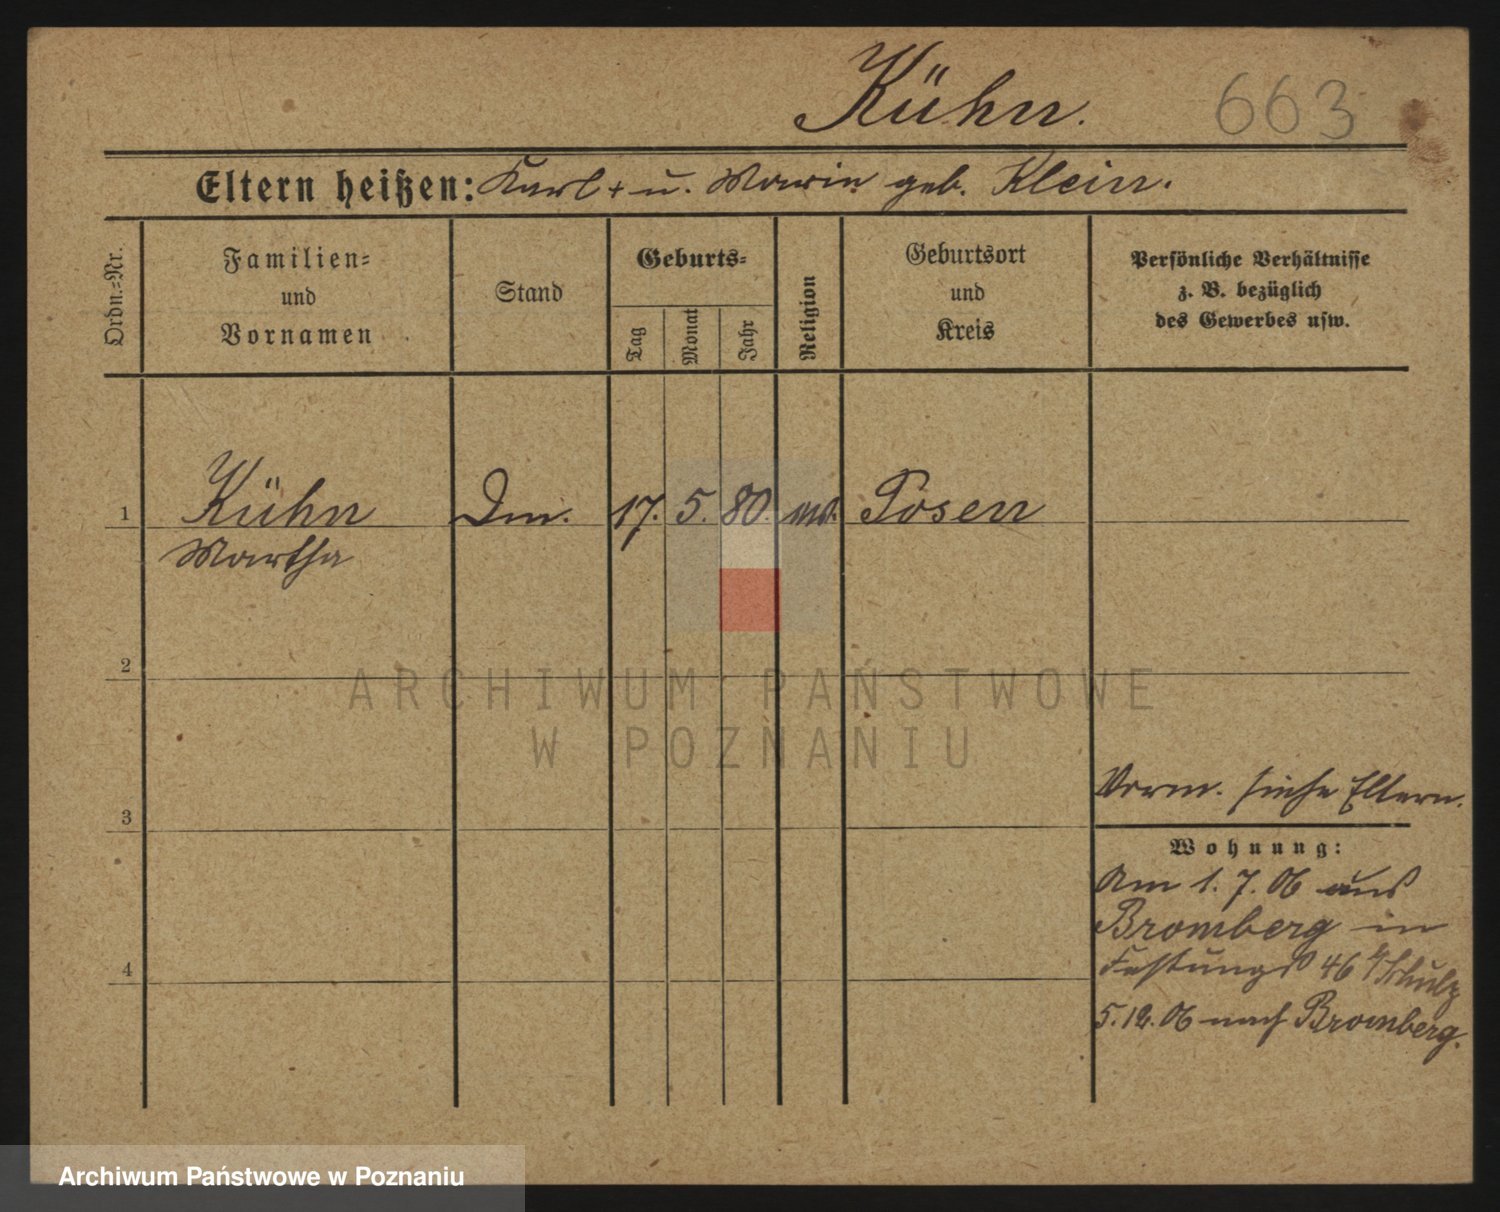 Kühn. 663
Eltern heißen: Karl + u. Marie geb. Klein.
Ordn.-Nr.
Familien-
und
Vornamen
Stand
Geburts-
Tag
Monat
Jahr
Religion
Geburtsort
und
Kreis
Persönliche Verhältnisse
z. B. bezüglich
des Gewerbes usw.
1 Kühn 17. 5. 80. Posen
Martha
2
ARCHIWUM PAŃSTWOWE
W POZNANIU
3
Vorm. siehe Eltern.
Wohnung:
Am 1. 7. 06 aus
Bromberg in
Festungs 46 Schulz
4
5. 12. 06 nach Bromberg.
Archiwum Państwowe w Poznaniu